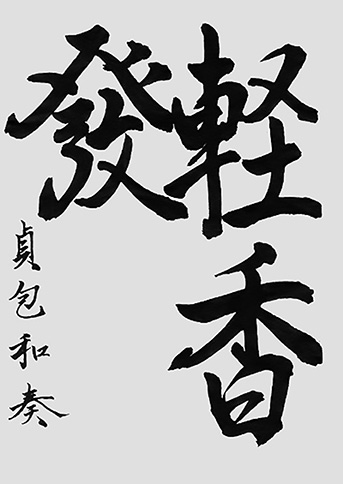 軽香
發
貞包和奏